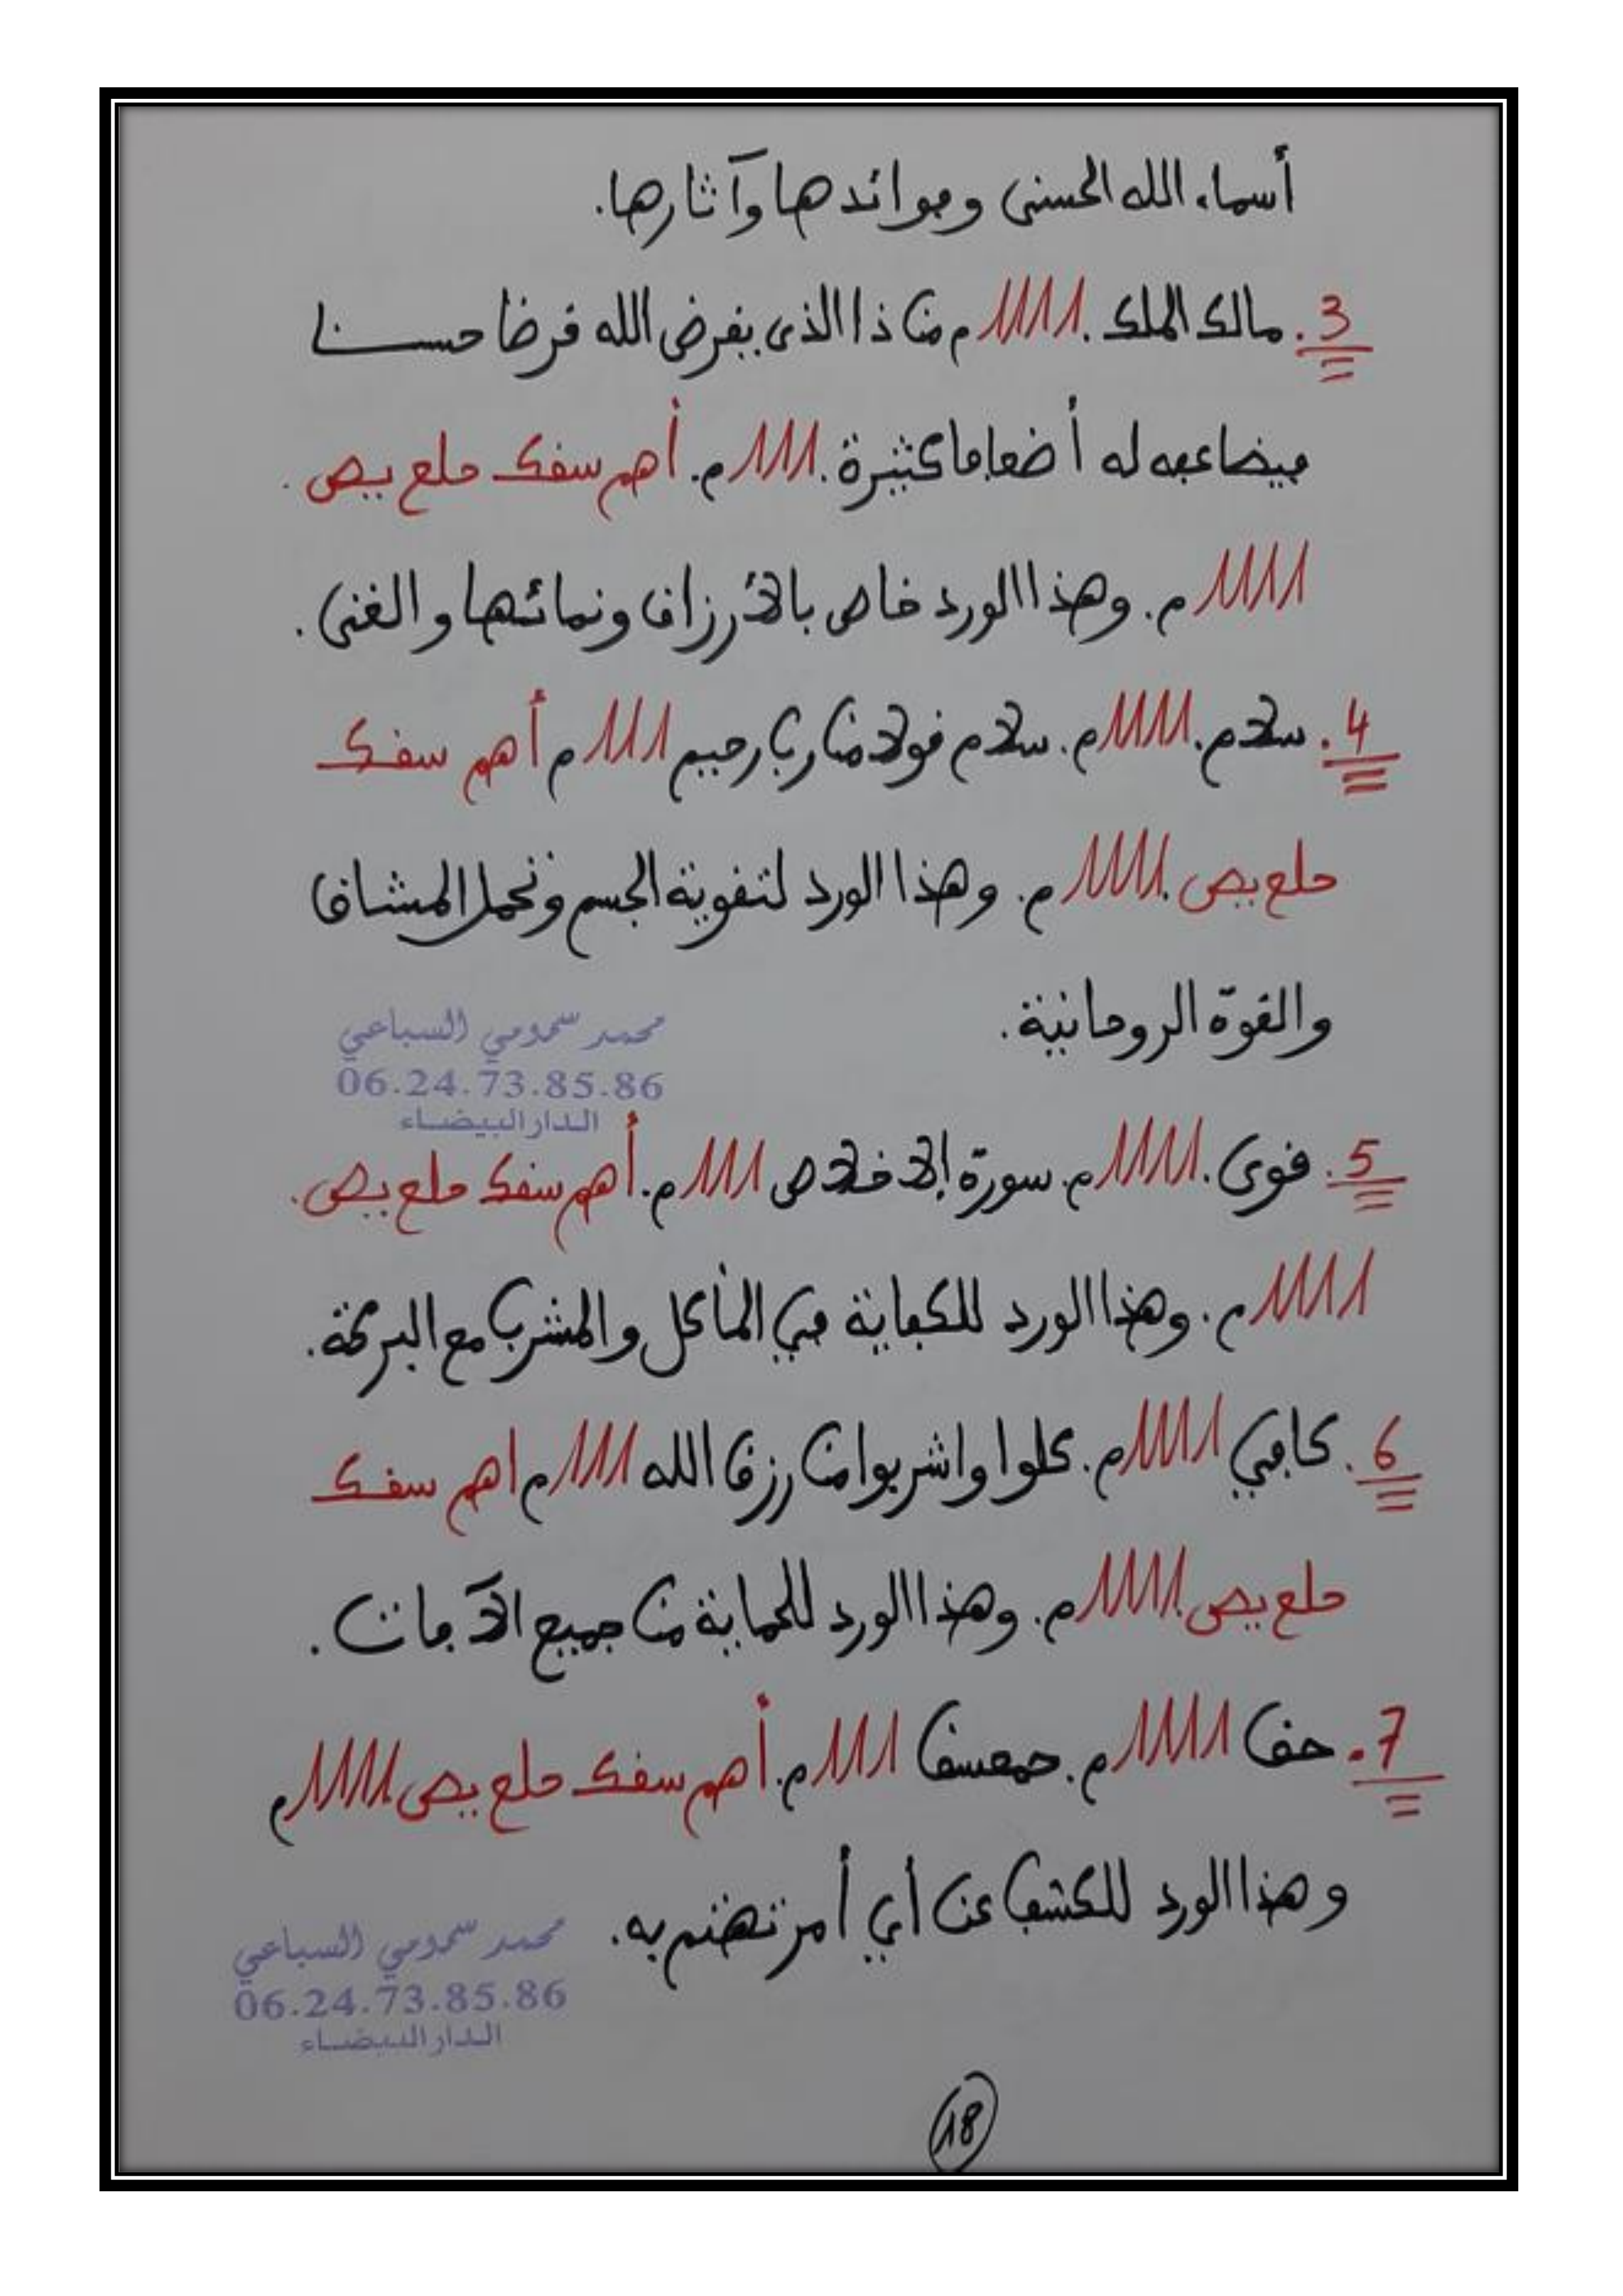 أسماء الله الحسنى وفوائدها وآثارها.
3. مالك الملك . 1111 م من ذا الذي يقرض الله قرضا حسنا
فيضاعفه له أضعافا كثيرة . 111 م. أهم سقك حلع يص .
1111 م. وهذا الورد خاص بالأرزاق ونمائها والغنى .
4. سلام. 1111 م. سلام قولا من رب رحيم 111 م أهم سقك
حلع يص . 1111 م. وهذا الورد لتقوية الجسم وتحمل المشاق
والقوة الروحانية.
محمد سمومي السباعي
06.24.73.85.86
الدار البيضاء
5. قوي. 1111 م. سورة الإخلاص 111 م. أهم سقك حلع يص.
1111 م. وهذا الورد للكفاية في المأكل والمشرب مع البركة.
6. كافي 1111 م. كلوا واشربوا من رزق الله 111 م اهم سقك
حلع يص. 1111 م. وهذا الورد للحماية من جميع الآفات .
7. حق 1111 م. حمعسق 111 م. أهم سقك حلع يص 1111 م
وهذا الورد للكشف عن أي أمر تهتم به.
محمد سمومي السباعي
06.24.73.85.86
الدار البيضاء
18